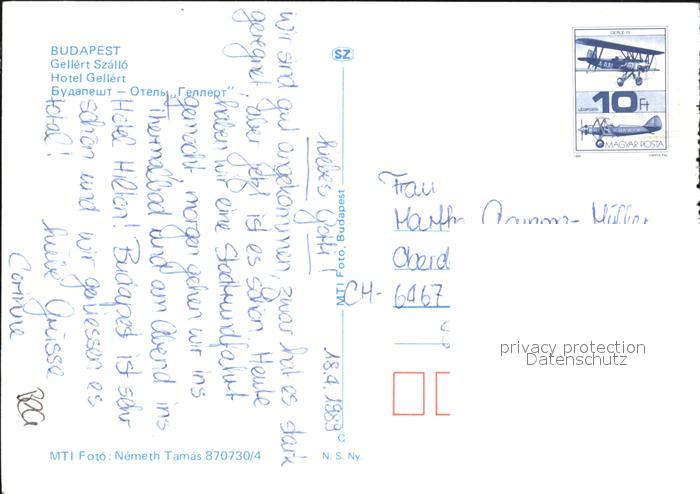 BUDAPEST
Gellért Szálló
Hotel Gellért
Будапешт — Отель „Геллерт"
SZ
GERLE 13
10 Ft
MAGYAR POSTA
18.9.1989
Liebes Gotti!
Wir sind gut angekommen, zwar hat es stark
geregnet, aber jetzt ist es schön. Heute
haben wir eine Stadtrundfahrt
gemacht, morgen gehen wir ins
Thermalbad und am Abend ins
Hotel Hilton! Budapest ist sehr
schön und wir geniessen es
total!
Liebe Grüsse
Corinne
Frau
Martha Müller
Oberd
CH- 6467
privacy protection
Datenschutz
MTI Fotó, Budapest
MTI Fotó: Németh Tamás 870730/4
N. S. Ny.